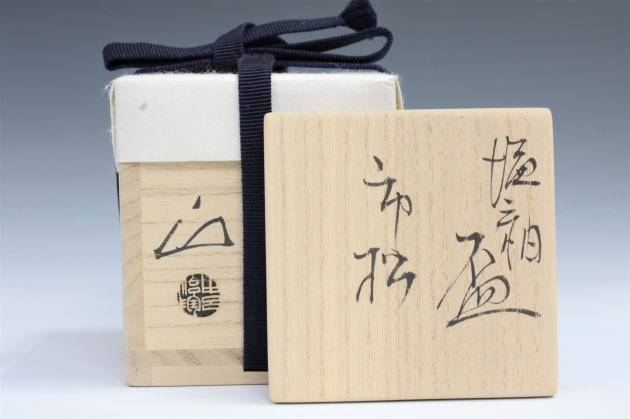 塩釉盃
市松
山